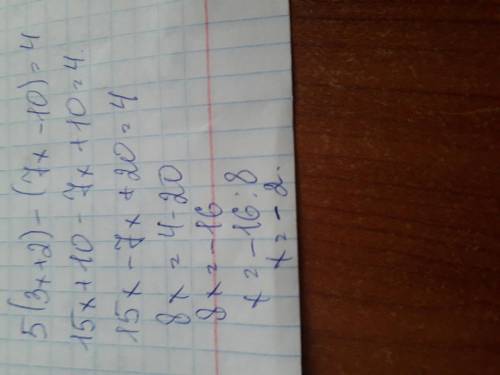 5(3x+2)-(7x-10)=4
15x+10-7x+10=4.
15x-7x+20=4
8x=4-20
8x=-16
x=-16:8
x=-2.